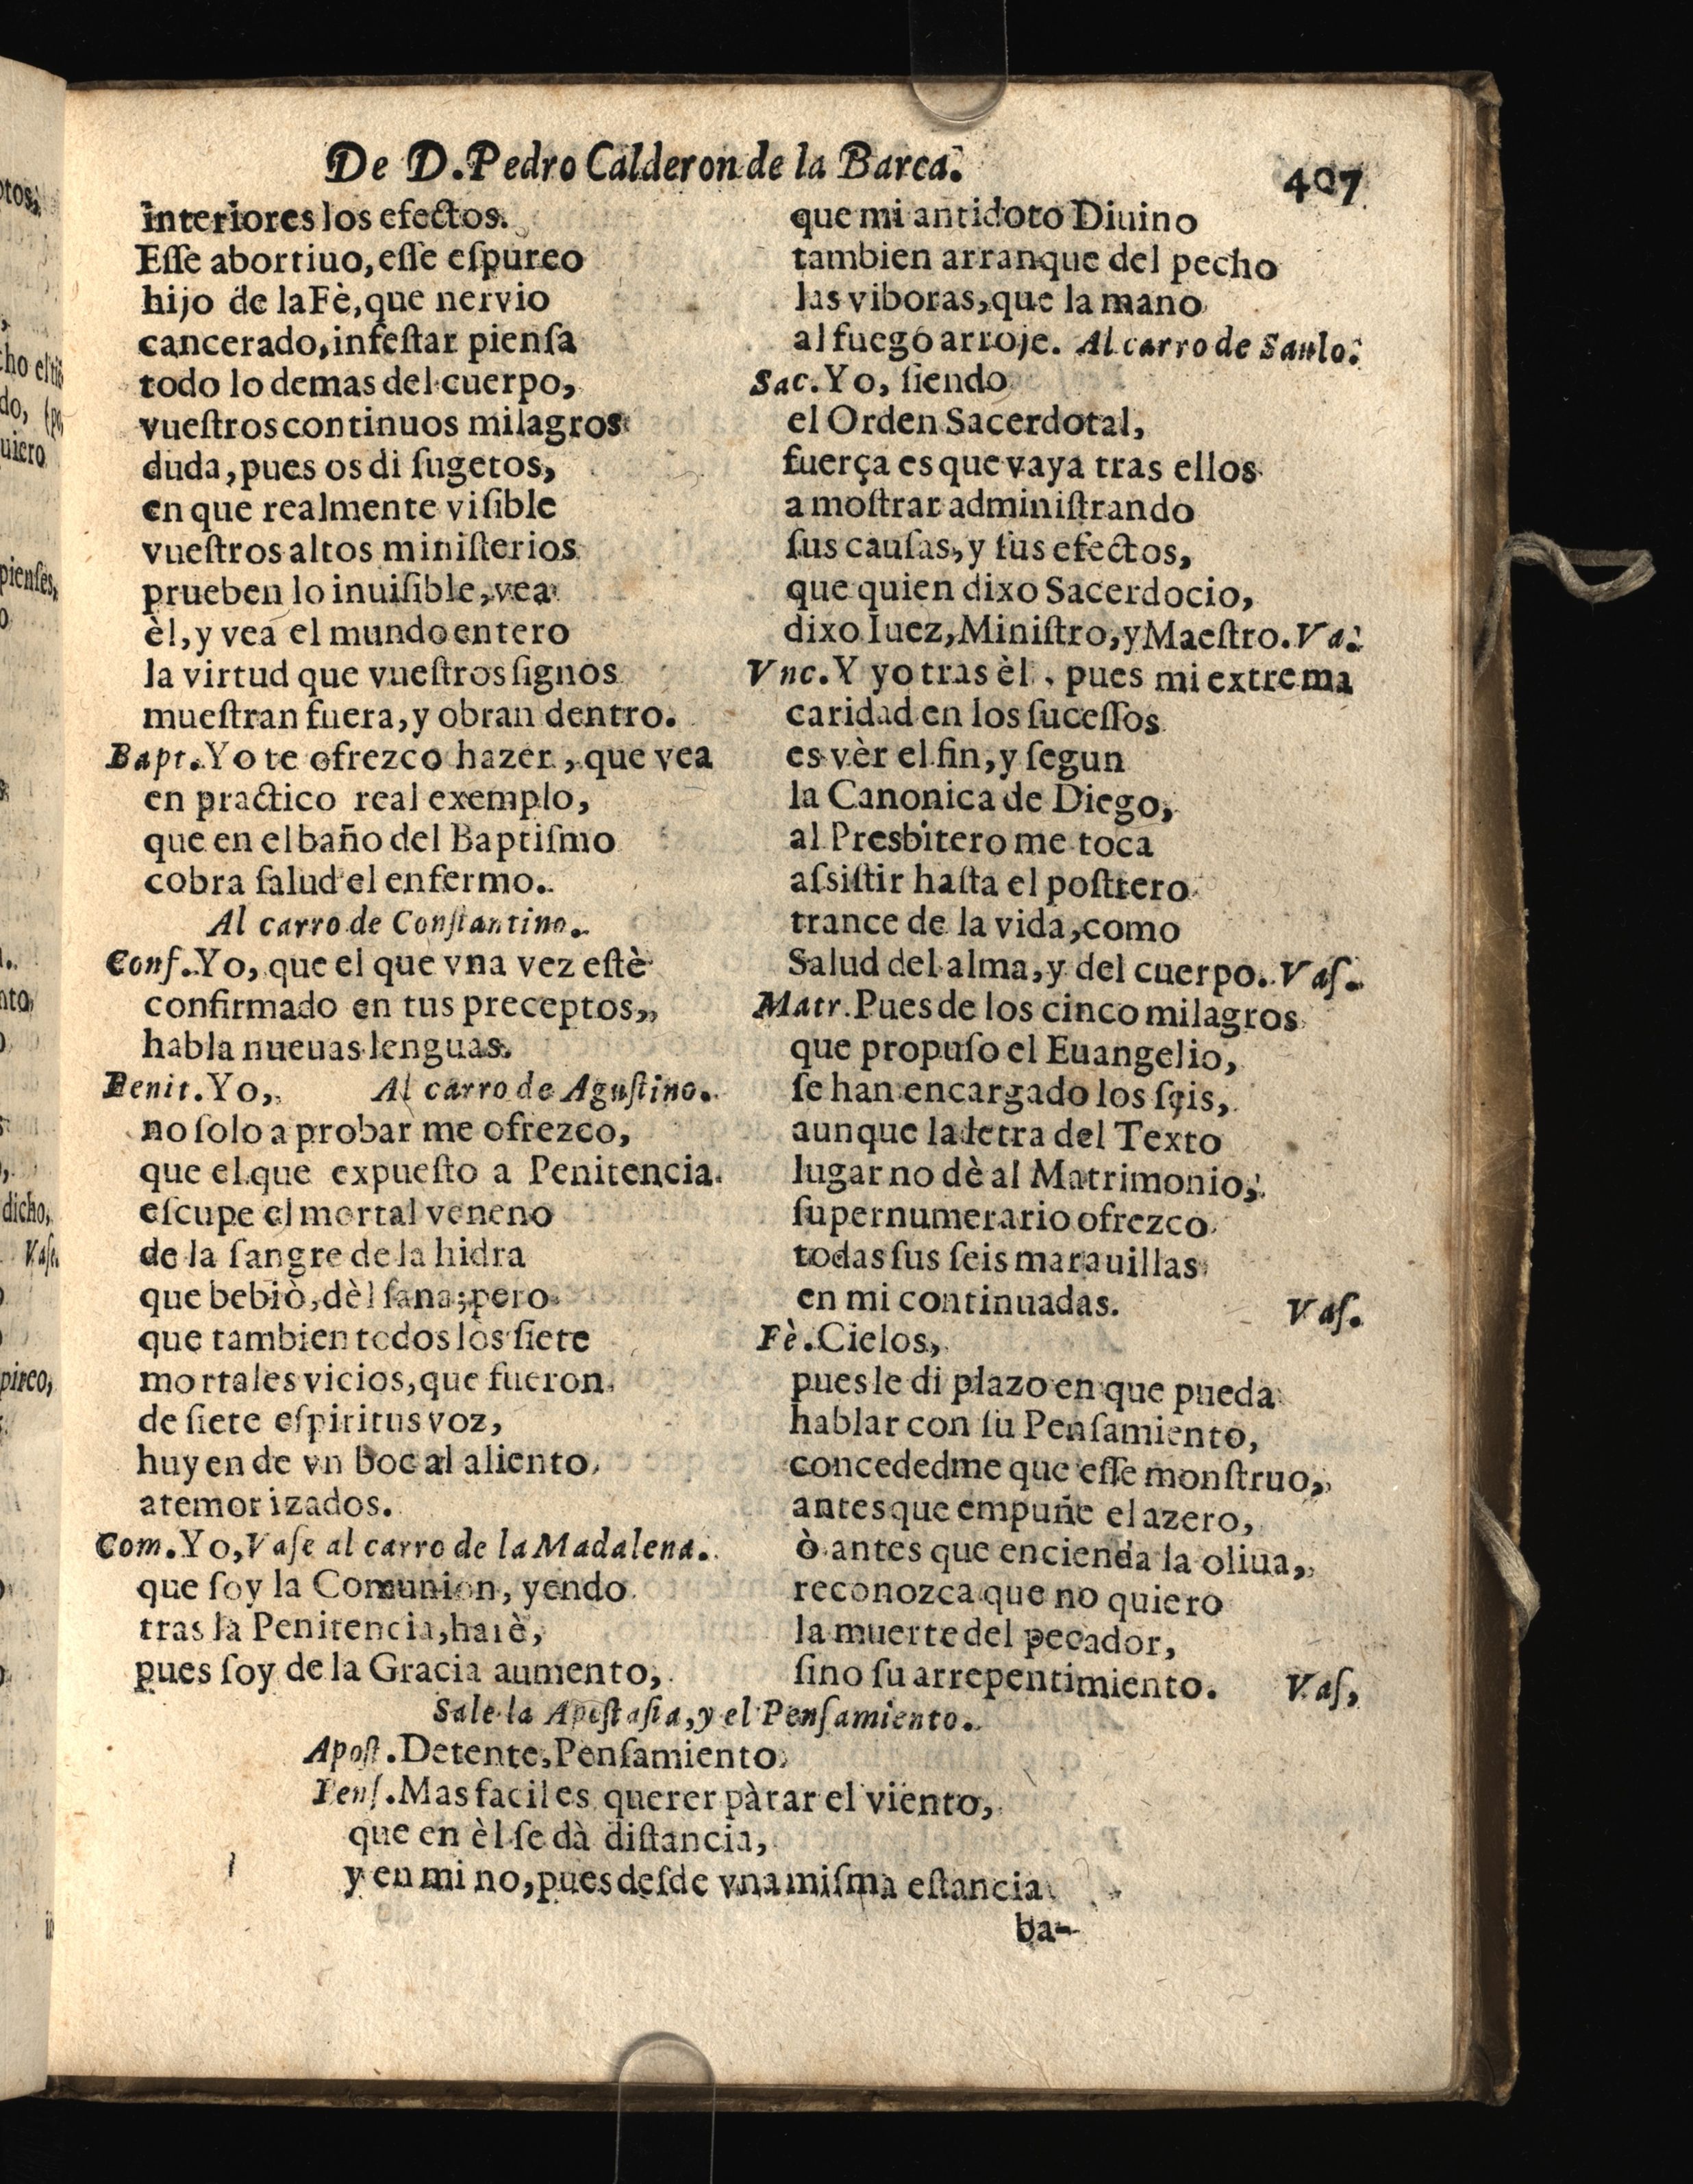 De D. Pedro Calderon de la Barca.
407
interiores los efectos.
Esse abortiuo, esse espureo
hijo de la Fè, que nervio
cancerado, infestar piensa
todo lo demas del cuerpo,
vuestros continuos milagros
duda, pues os di sugetos,
en que realmente visible
vuestros altos ministerios
prueben lo inuisible, vea
èl, y vea el mundo entero
la virtud que vuestros signos
muestran fuera, y obran dentro.
Bapt. Yo te ofrezco hazer, que vea
en practico real exemplo,
que en el baño del Baptismo
cobra salud el enfermo.
Al carro de Constantino.
Conf. Yo, que el que vna vez estè
confirmado en tus preceptos,
habla nueuas lenguas.
Penit. Yo, Al carro de Agustino.
no solo a probar me ofrezco,
que el que expuesto a Penitencia.
escupe el mortal veneno
de la sangre de la hidra
que bebiò, dèl sana; pero
que tambien todos los siete
mortales vicios, que fueron
de siete espiritus voz,
huyen de vn bocal aliento
atemorizados.
Com. Yo, Vase al carro de la Madalena.
que soy la Comunion, yendo
tras la Penitencia, harè,
pues soy de la Gracia aumento,
que mi antidoto Diuino
tambien arranque del pecho
las viboras, que la mano
al fuego arroje. Al carro de Saulo.
Sac. Yo, siendo
el Orden Sacerdotal,
fuerça es que vaya tras ellos
a mostrar administrando
sus causas, y sus efectos,
que quien dixo Sacerdocio,
dixo Iuez, Ministro, y Maestro. Va.
Vnc. Y yo tras èl, pues mi extrema
caridad en los sucessos
es vèr el fin, y segun
la Canonica de Diego,
al Presbitero me toca
assistir hasta el postrero
trance de la vida, como
Salud del alma, y del cuerpo. Vas.
Matr. Pues de los cinco milagros
que propuso el Euangelio,
se han encargado los seis,
aunque la letra del Texto
lugar no dè al Matrimonio,
supernumerario ofrezco
todas sus seis marauillas
en mi continuadas. Vas.
Fè. Cielos,
pues le di plazo en que pueda
hablar con su Pensamiento,
concededme que esse monstruo,
antes que empuñe el azero,
ò antes que encienda la oliua,
reconozca que no quiero
la muerte del pecador,
sino su arrepentimiento. Vas,
Sale la Apostasia, y el Pensamiento.
Apost. Detente, Pensamiento.
Pens. Mas facil es querer pàrar el viento,
que en èl se dà distancia,
y en mi no, pues desde vna misma estancia
ba-